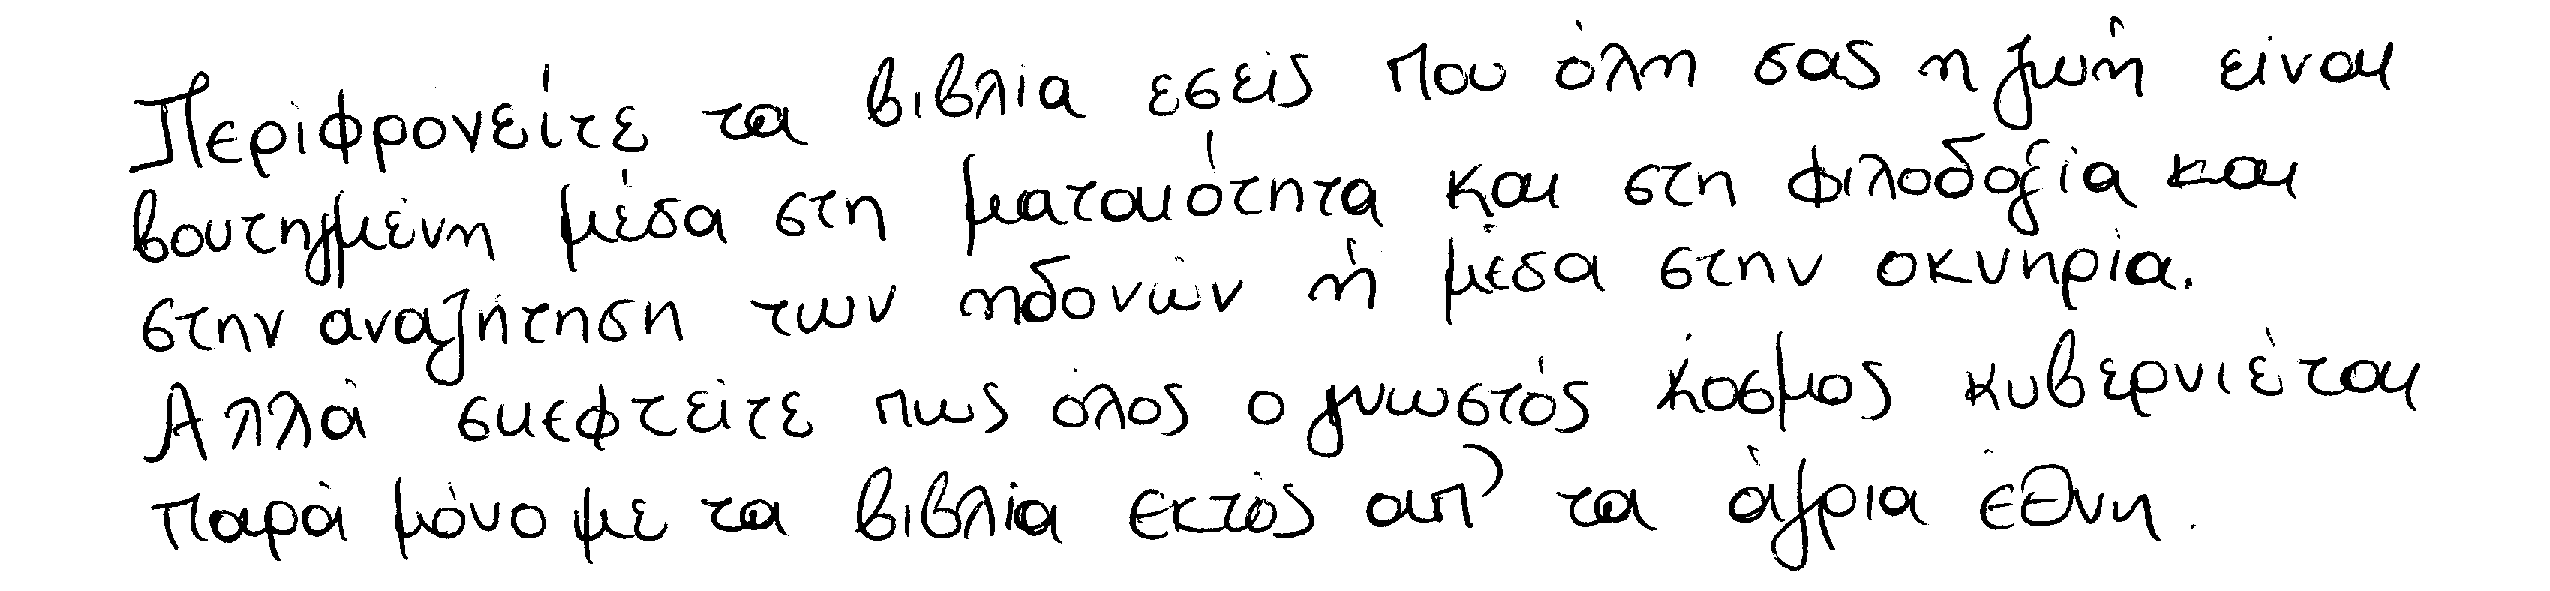 Περιφρονείτε τα βιβλία εσείς που όλη σας η ζωή είναι
βουτηγμένη μέσα στη ματαιότητα και στη φιλοδοξία και
στην αναζήτηση των ηδονών ή μέσα στην οκνηρία.
Αλλά σκεφτείτε πως όλος ο γνωστός κόσμος κυβερνιέται
παρά μόνο με τα βιβλία εκτός απ' τα άγρια έθνη.